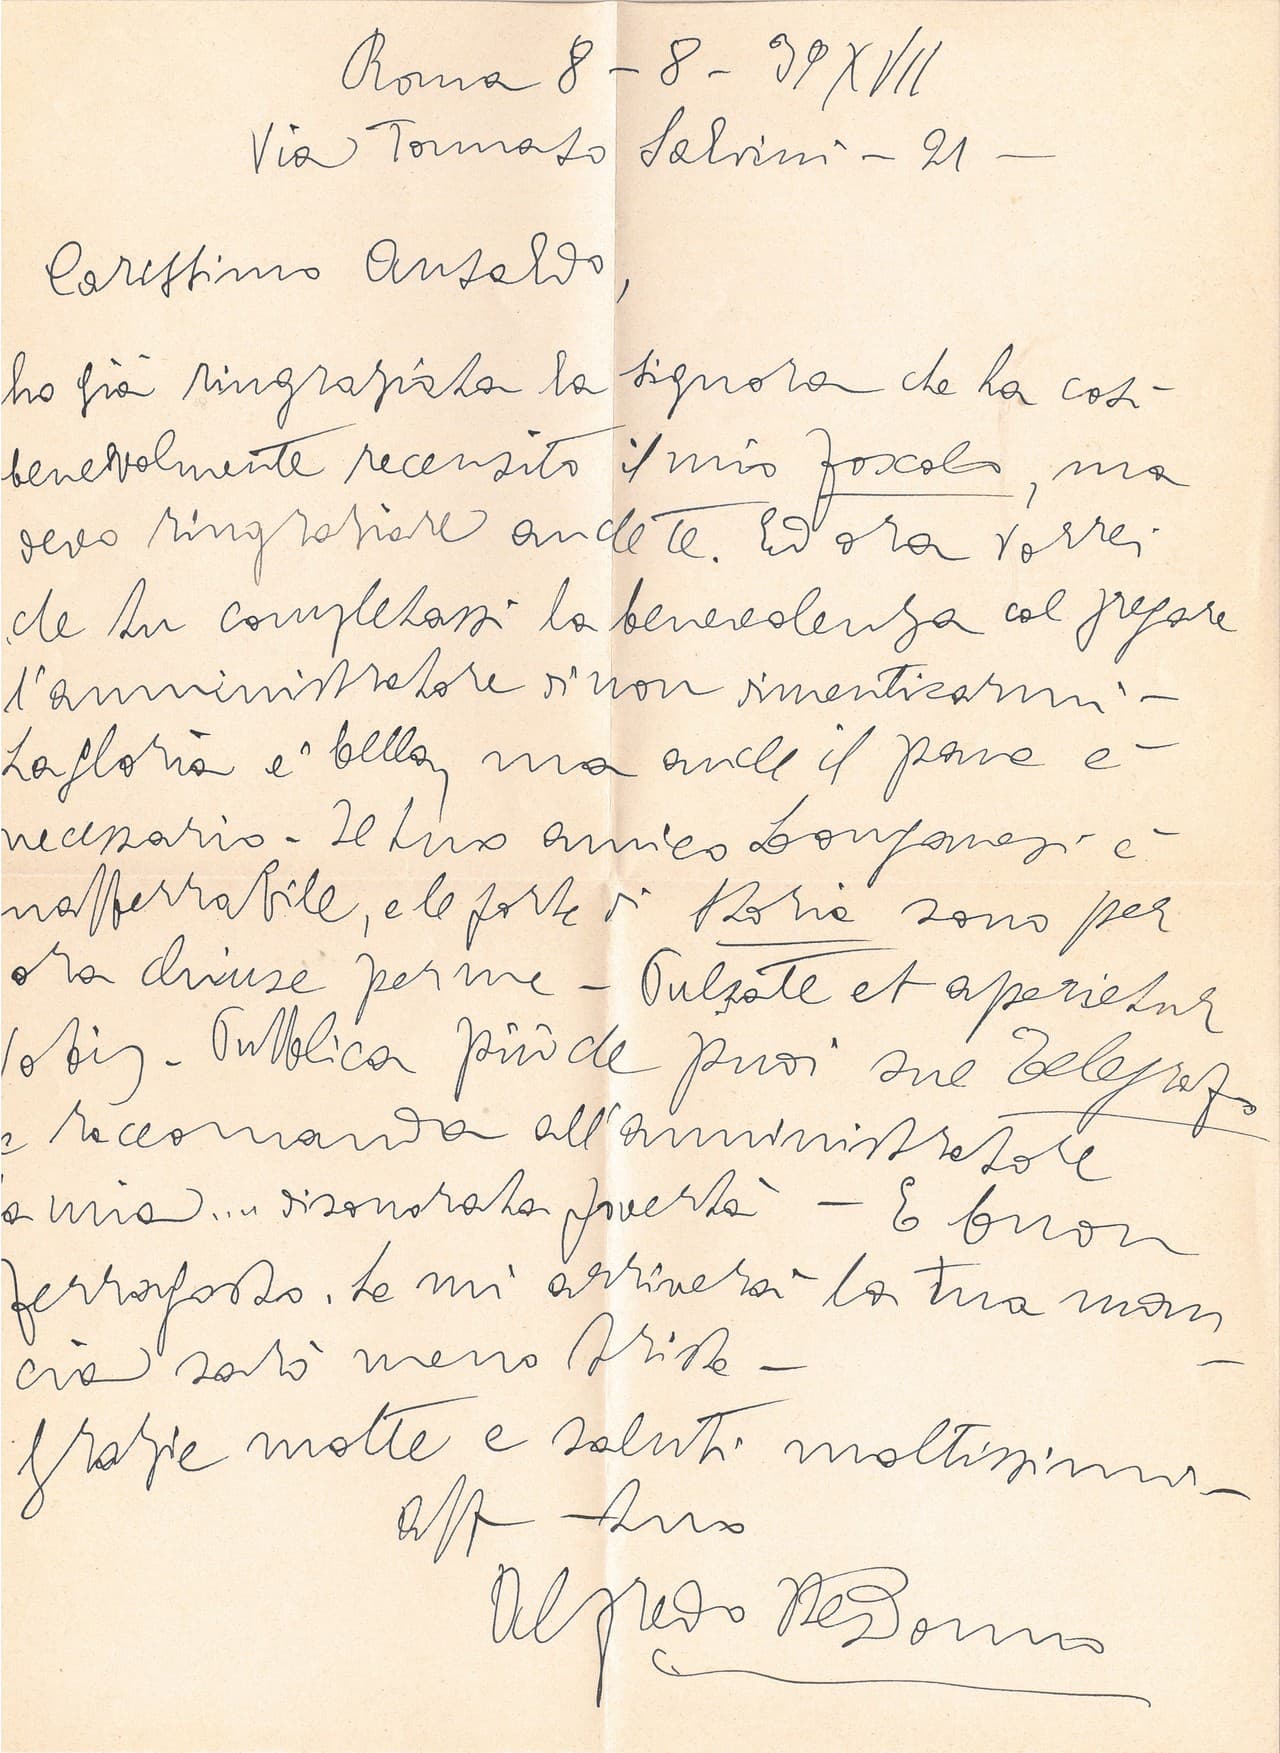 Roma 8 - 8 - 39 XVII
Via Tommaso Salvini - 21 -
Carissimo Ansaldo,
ho già ringraziata la signora che ha così
benevolmente recensito il mio Foscolo, ma
devo ringraziare anche te. Ed ora vorrei
che tu completassi la benevolenza col pregare
l'amministratore di non dimenticarmi -
La gloria è bella, ma anche il pane è
necessario - Il tuo amico Longanesi è
inafferrabile, e le porte di Storia sono per
ora chiuse per me - Pulsate et aperietur
vobis - Pubblica più che puoi sul Telegrafo
e raccomanda all'amministratore
la mia ... disonorata povertà - E buon
ferragosto. Se mi arriverà la tua man
cia sarà meno triste -
Grazie molte e saluti moltissimi -
aff tuo
Alfredo De Donno